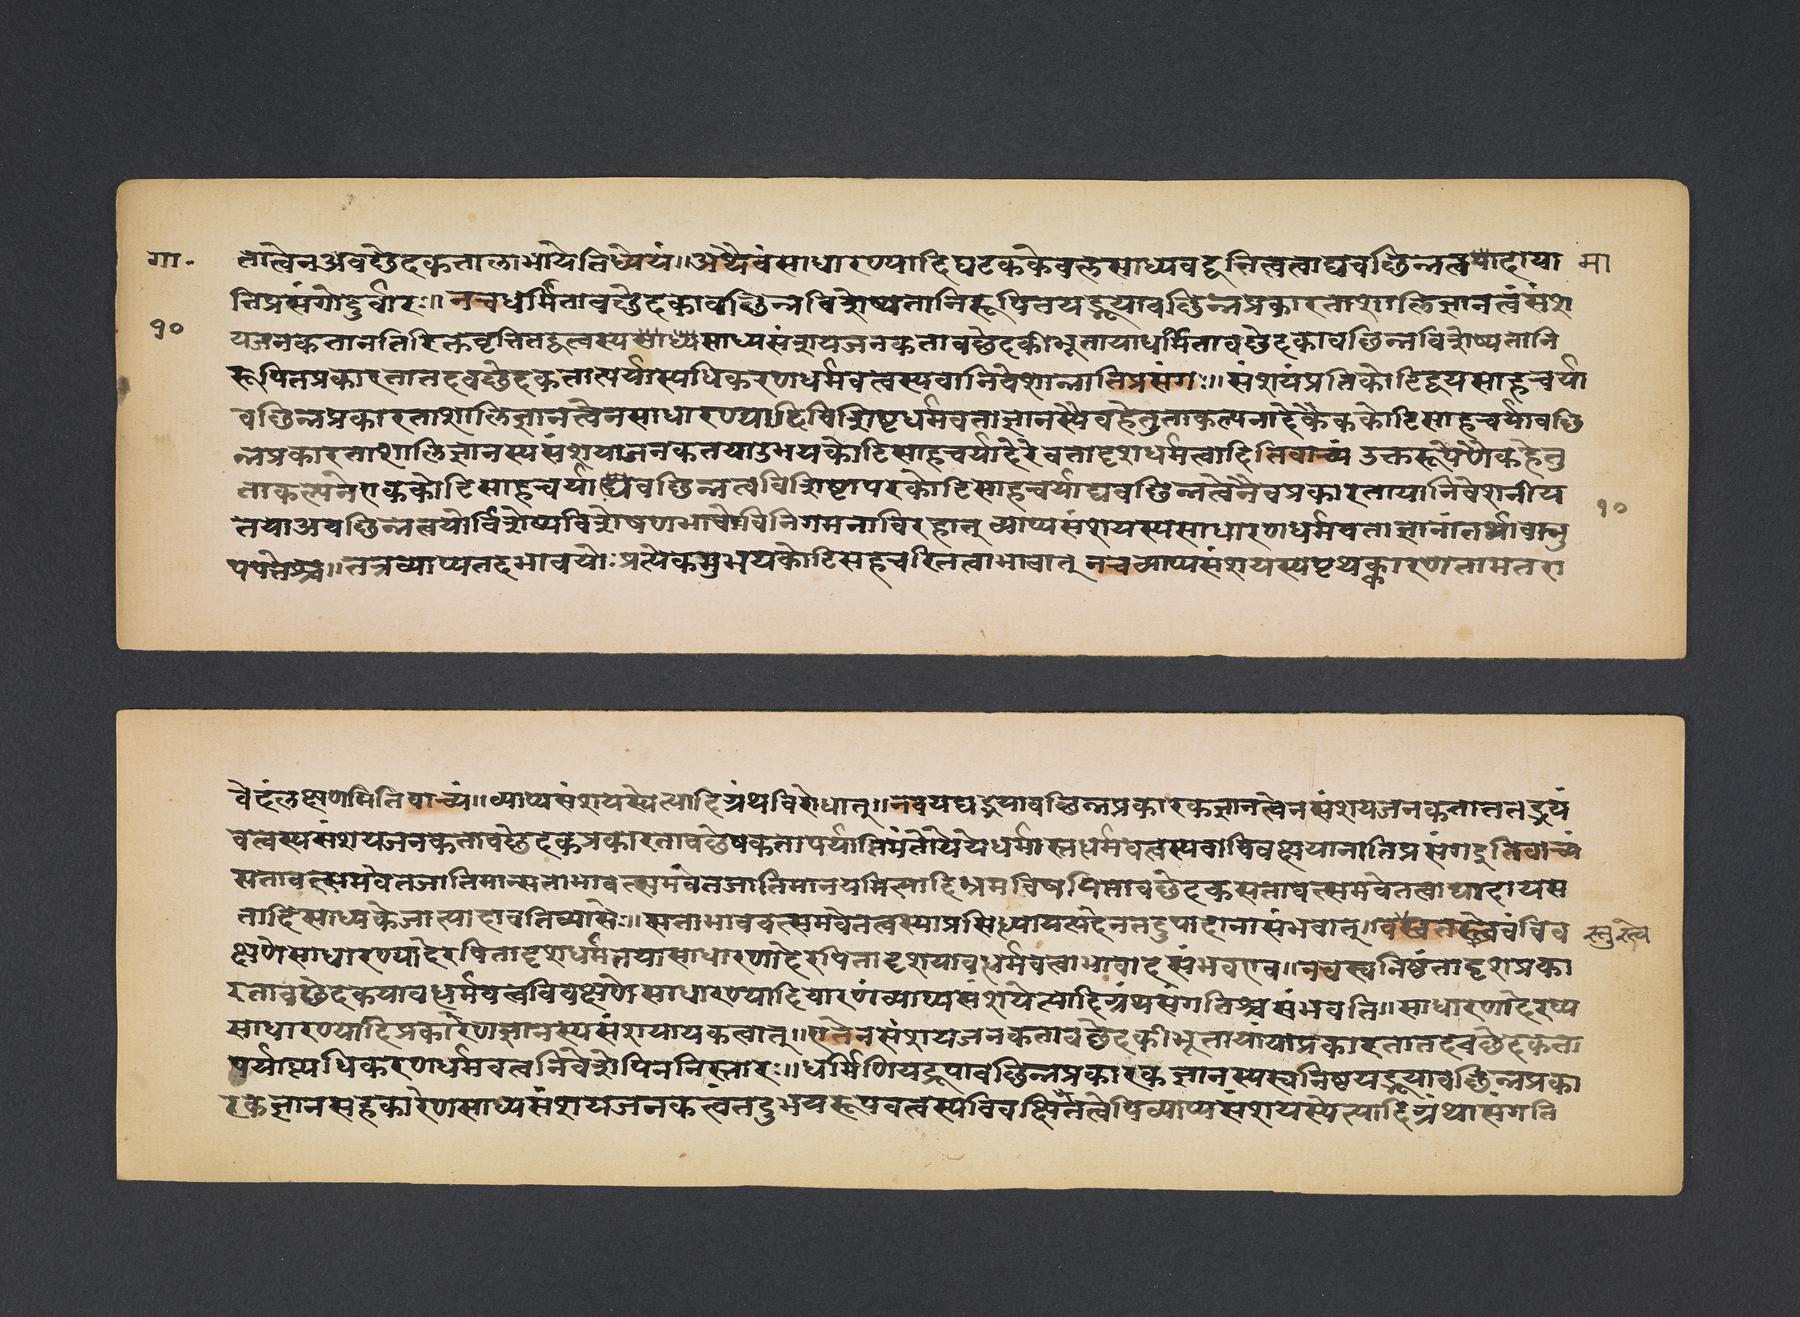 गा॰
१०
तात्वेनअवछेदकतालाभायेतिध्येयं॥अथैवंसाधारण्यादिघटककेवलसाध्यवद्वृत्तित्वत्वाद्यवछिन्नत्वमादाया
मा
तिप्रसंगोदुर्वारः॥नचधर्मितावछेदकावछिन्नविशेष्यतानिरूपितयद्रूपावछिन्नप्रकारताशालिज्ञानत्वंसंश
यजनकतानतिरिक्तवृत्तितद्रूत्वस्यसाध्यसंशयजनकतावछेदकीभूतायाधर्मितावछेदकावछिन्नविशेष्यतानि
रूपितप्रकारतातदवछेदकतापर्याप्त्यधिकरणधर्मवत्वस्यवानिवेशान्नातिप्रसंगः॥संशयंप्रतिकोटिद्वयसाहचर्या
वछिन्नप्रकारताशालिज्ञानत्वेनसाधारण्यादिविशिष्टधर्मवत्ताज्ञानस्यैवहेतुताकल्पनादेकैककोटिसाहचर्यावछि
न्नप्रकारताशालिज्ञानस्यसंशयाजनकतयाउभयकोटिसाहचर्यादेरेवतादृशधर्मत्वादितिवाच्यं उक्तरूपेणैकहेतु
ताकल्पनेएककोटिसाहचर्याद्यवछिन्नत्वविशिष्टापरकोटिसाहचर्याद्यवछिन्नत्वेनैवप्रकारतायानिवेशनीय
१०
तयाअवछिन्नत्वयोर्विशेष्यविशेषणभावेविनिगमनाविरहात् व्याप्यसंशयस्यसाधारणधर्मवत्ताज्ञानांतर्भावानु
पपत्तेश्च॥तत्रव्याप्यतदभावयोःप्रत्येकमुभयकोटिसहचरितत्वाभावात् नचव्याप्यसंशयस्यपृथक्कारणतामतए
वेदंलक्षणमितिवाच्यं॥व्याप्यसंशयस्येत्यादिग्रंथविरोधात्॥नचयद्यद्रूपावछिन्नप्रकारकज्ञानत्वेनसंशयजनकतातत्तद्रूप
वत्वस्यसंशयजनकतावछेदकप्रकारतावछेषकतापर्याप्तिमंतोयेयेधर्मास्तत्धर्मवत्वस्यवाविवक्षयानातिप्रसंगइतिवाच्यं
सत्तावत्समवेतजातिमान्सत्ताभाववत्समवेतजातिमानयमित्यादिभ्रमविषयितावछेदकसत्तावत्समवेतत्वाद्यादायस
त्तादिसाध्यकेजात्यादावतिव्याप्तेः॥सत्ताभाववत्समवेतत्वस्याप्रसिध्यायत्पदेनतदुपादानासंभवात्॥वस्तुतस्त्वेवंविव
स्तुस्त्वे
क्षणेसाधारण्यादेरपितादृशधर्मतयासाधारणादेरपितादृशयावद्धर्मवत्वाभावादसंभवएव॥नचस्वनिष्ठतादृशप्रका
रतावछेदकयावद्धर्मवत्वविवक्षणेसाधारण्यादिवारणंव्याप्यसंशयेत्यादिग्रंथसंगतिश्चसंभवति॥साधारणादेरप्य
साधारण्यादिप्रकारेणज्ञानस्यसंशयायकत्वात्॥एतेनसंशयजनकतावछेदकीभूतायायाप्रकारतातदवछेदकता
पर्याप्त्यधिकरणधर्मवत्वनिवेशेपिननिस्तारः॥धर्मिणियद्रूपावछिन्नप्रकारकज्ञानस्यस्वनिष्ठयद्रूपावछिन्नप्रका
रकज्ञानसहकारेणसाध्यसंशयजनकत्वंतदुभयरूपवत्वस्यविवक्षितत्वेपिव्याप्यसंशयस्येत्यादिग्रंथासंगति